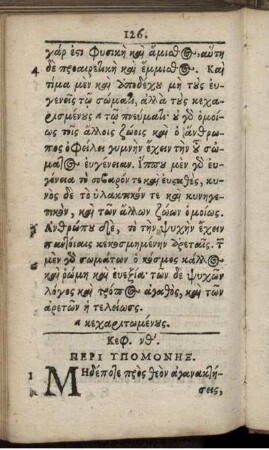 126.
γάρ ἐστι φυσικὴ καὶ ἄμισθος, αὕτη
δὲ προαιρετικὴ καὶ ἔμμισθος. Καὶ
4
τίμα μὲν καὶ ὑποδέχου μὴ τοὺς εὐ-
γενεῖς τῷ σώματι, ἀλλὰ τοὺς κεχα-
ρισμένους a τῷ πνεύματι· οὐ γὰρ ὁμοί-
ως τοῖς ἄλλοις ζώοις καὶ ὁ ἄνθρω-
πος ὀφείλει γυμνὴν ἔχειν τὴν τοῦ σώ-
ματος εὐγένειαν. ἵππου μὲν γὰρ εὐ-
γένεια τὸ σοβαρόν τε καὶ εὐσταθές, κυ-
νὸς δὲ τὸ ὑλακτικόν τε καὶ κυνηγε-
τικόν, καὶ τῶν ἄλλων ζώων ὁμοίως.
Ἀνθρώπου δὲ, τὸ τὴν ψυχὴν ἔχειν
παντοίαις κεκοσμημένην ἀρεταῖς. τῶν
μὲν γὰρ σωμάτων ὁ κόσμος κάλλος
καὶ ῥώμη καὶ εὐεξία· τῶν δὲ ψυχῶν
λόγος καὶ τρόπος ἀγαθὸς, καὶ τῶν
ἀρετῶν ἡ τελείωσις.
a κεχαριτωμένους.
Κεφ. νθʹ.
ΠΕΡΙ ΥΠΟΜΟΝΗΣ.
1
Μηδέποτε πρὸς θεὸν ἀγανακτή-
σεις,